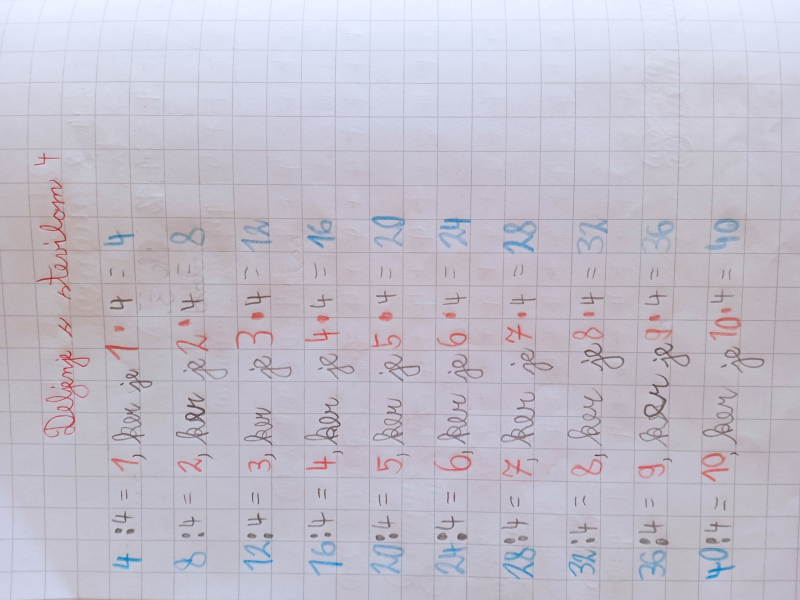 Deljenje s številom 4
4 : 4 = 1, ker je 1 · 4 = 4
8 : 4 = 2, ker je 2 · 4 = 8
12 : 4 = 3, ker je 3 · 4 = 12
16 : 4 = 4, ker je 4 · 4 = 16
20 : 4 = 5, ker je 5 · 4 = 20
24 : 4 = 6, ker je 6 · 4 = 24
28 : 4 = 7, ker je 7 · 4 = 28
32 : 4 = 8, ker je 8 · 4 = 32
36 : 4 = 9, ker je 9 · 4 = 36
40 : 4 = 10, ker je 10 · 4 = 40